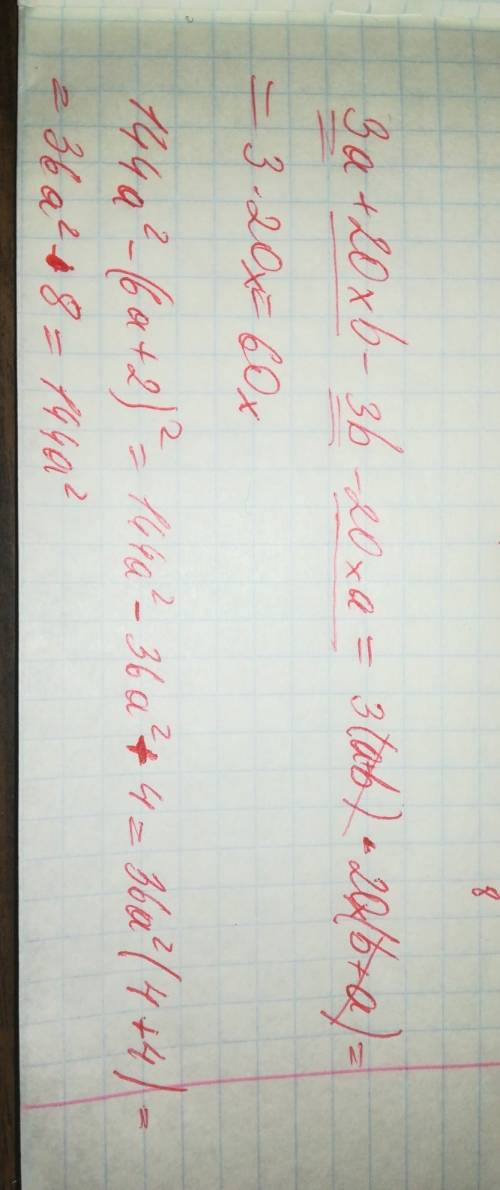 8
3a + 20xb - 3b - 20xa = 3(a+b) · 20x(b+a) =
= 3 · 20x = 60x
144a² - (6a+2)² = 144a² - 36a² + 4 = 36a²(4+4) =
= 36a² · 8 = 144a²